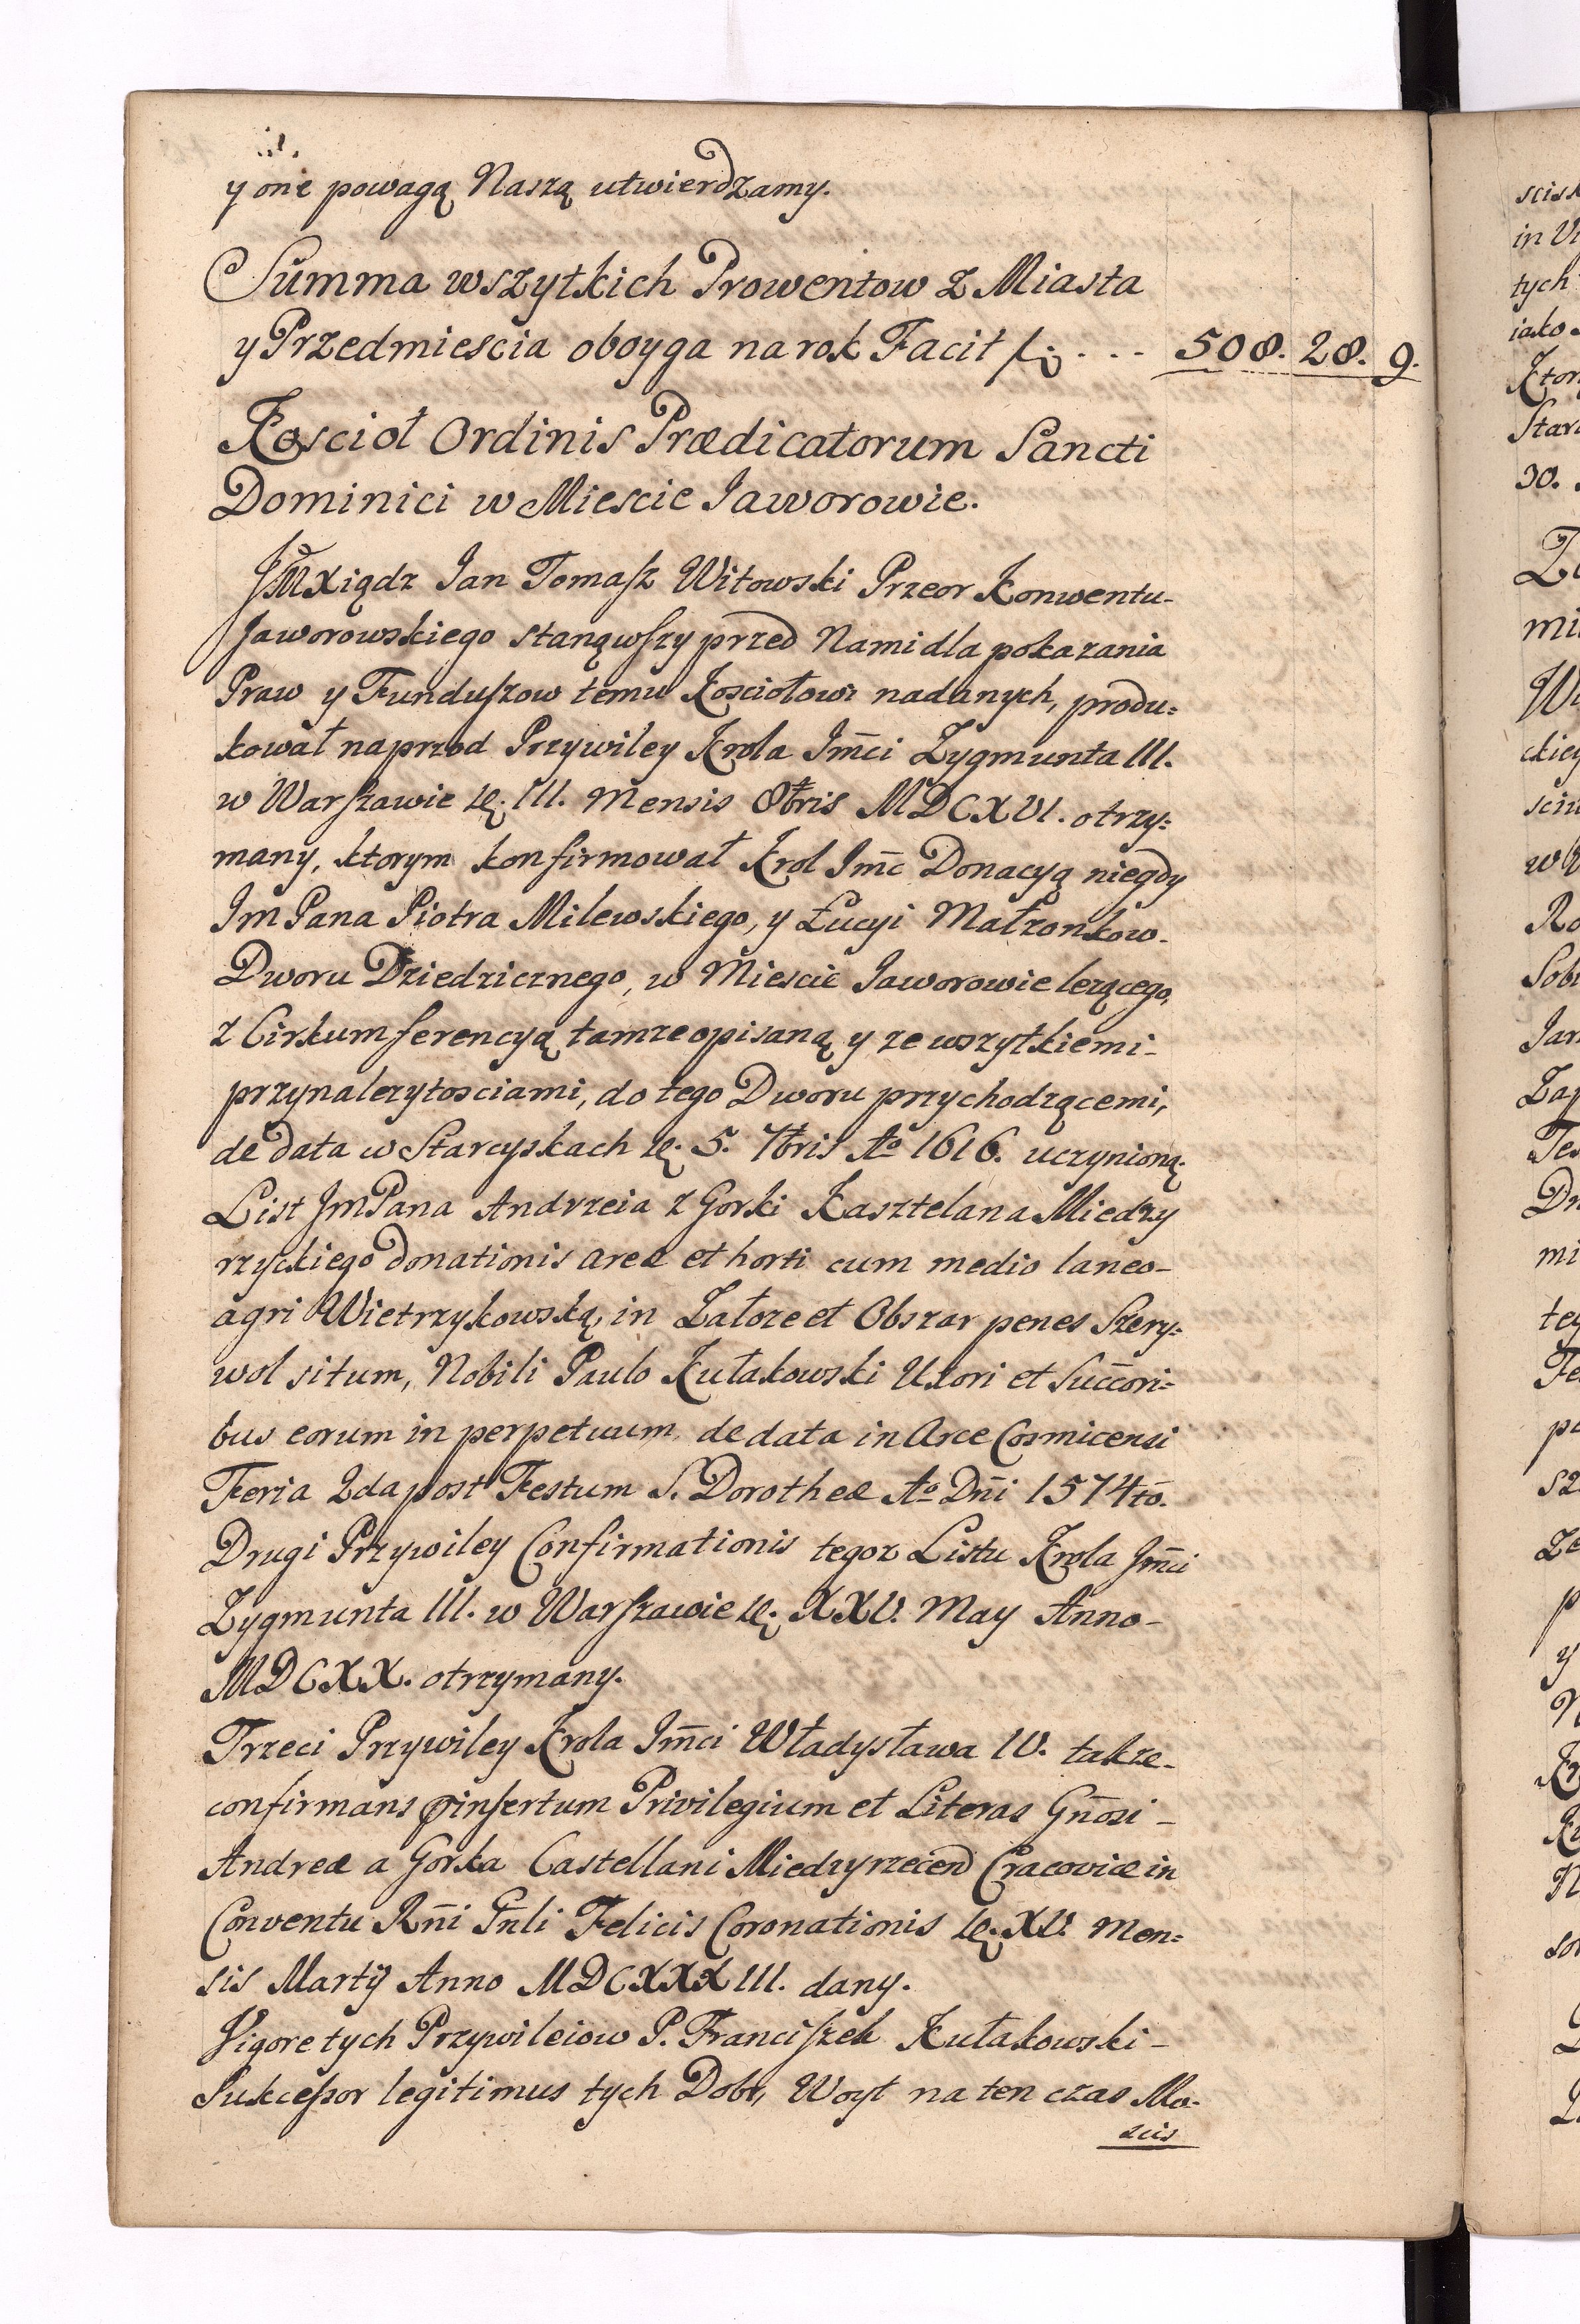 y one powagą Naszą utwierdzamy.
Summa wszytkich Prowentow z Miasta
y Przedmiescia oboyga na rok Facit f: . . . 508. 28. 9.
Koscioł Ordinis Prædicatorum Sancti
Dominici w Miescie Jaworowie.
JMXiądz Jan Tomasz Witowski Przeor Konwentu-
Jaworowskiego stanąwszy przed Nami dla pokazania
Praw y Funduszow temu Kosciołowi nadanych, produ=
kował naprzod Przywiley Krola Jm̄ci Zygmunta III.
w Warszawie d. III. Mensis 8bris MDCXVI. otrzy=
many, ktorym konfirmował Krol Jm̄c Donacyą niegdy
Jm Pana Piotra Milewskiego, y Łucyi Małzonkow-
Dworu Dziedzicznego, w Miescie Jaworowie lezącego,
z Cirkumferencyą tamze opisaną y ze wszytkiemi-
przynalezytosciami, do tego Dworu przychodzącemi,
de data w Starcyskach d. 5. 7bris Ao 1616. uczynioną.
List Jm Pana Andrzeia z Gorki Kasztelana Miedzy
rzyckiego donationis areæ et horti cum medio laneo-
agri Wietrzykowską, in Załoze et Obszar penes Szery=
wol situm, Nobili Paulo Kułakowski Uxori et Succ̄ori=
bus eorum in perpetuum de data in Arce Cosmicensi
Feria 2da post Festum S. Dorotheæ Ao Dn̄i 1574to.
Drugi Przywiley Confirmationis tegoz Listu Krola Jm̄ci
Zygmunta III. w Warszawie d. XXV. May Anno-
MDCXX. otrzymany.
Trzeci Przywiley Krola Jm̄ci Władysława IV. takze-
confirmans insertum Privilegium et Literas Gn̄osi-
Andreæ a Gorka Castellani Miedzyrzecen Cracoviæ in
Conventu Rn̄i Gn̄li Felicis Coronationis d. XV. Men=
sis Martij Anno MDCXXXIII. dany.
Vigore tych Przywileiow P. Franciszek Kułakowski-
Sukcessor legitimus tych Dobr, Woyt na ten czas Mo-
scis